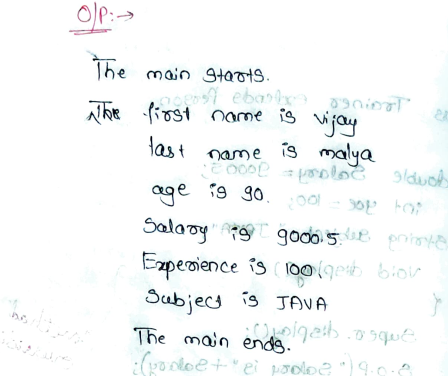 O/P:→
The main starts.
The first name is vijay
last name is malya
age is 90.
Salary is 9000.5.
Experience is 100.
Subject is JAVA
The main ends.